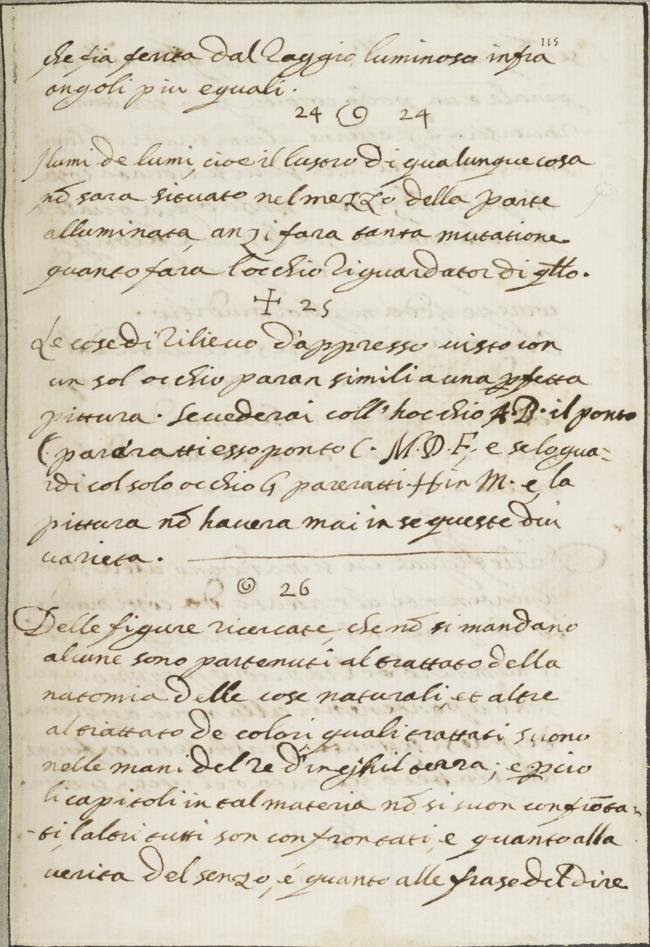 115
che sia ferita dal Raggio luminoso infra
angoli piu eguali.
24 24
I lumi de lumi, cioe il lustro di qualunque cosa
nō sara situato nel mezzo della parte
alluminata, anzi fara tanta mutatione
quanto fara l'occhio riguardator di q̄llo.
+ 25
Le cose di rilieuo d'appresso uisto con
un sol occhio paran simili a una p̱fetta
pittura. Se uederai coll'hocchio A B. il ponto
C pararatti esso ponto C. M. D. F, e se lo gua=
rdi col solo occhio G pareratti. H in M. e la
pittura nō hauera mai in se queste dui
uarieta.
26
Delle figure ricercate, che nō si mandano
alcune sono partenuti al trattato della
natomia delle cose naturali, et altre
al trattato de colori quali trattati suono
nelle mani del re d'inghilterra; e p̱cio
li capitoli in tal materia nō si suon confrōta-
-ti, l'altri tutti son confrontati, e quanto alla
uerita del senzo, é quanto alle frase del dire